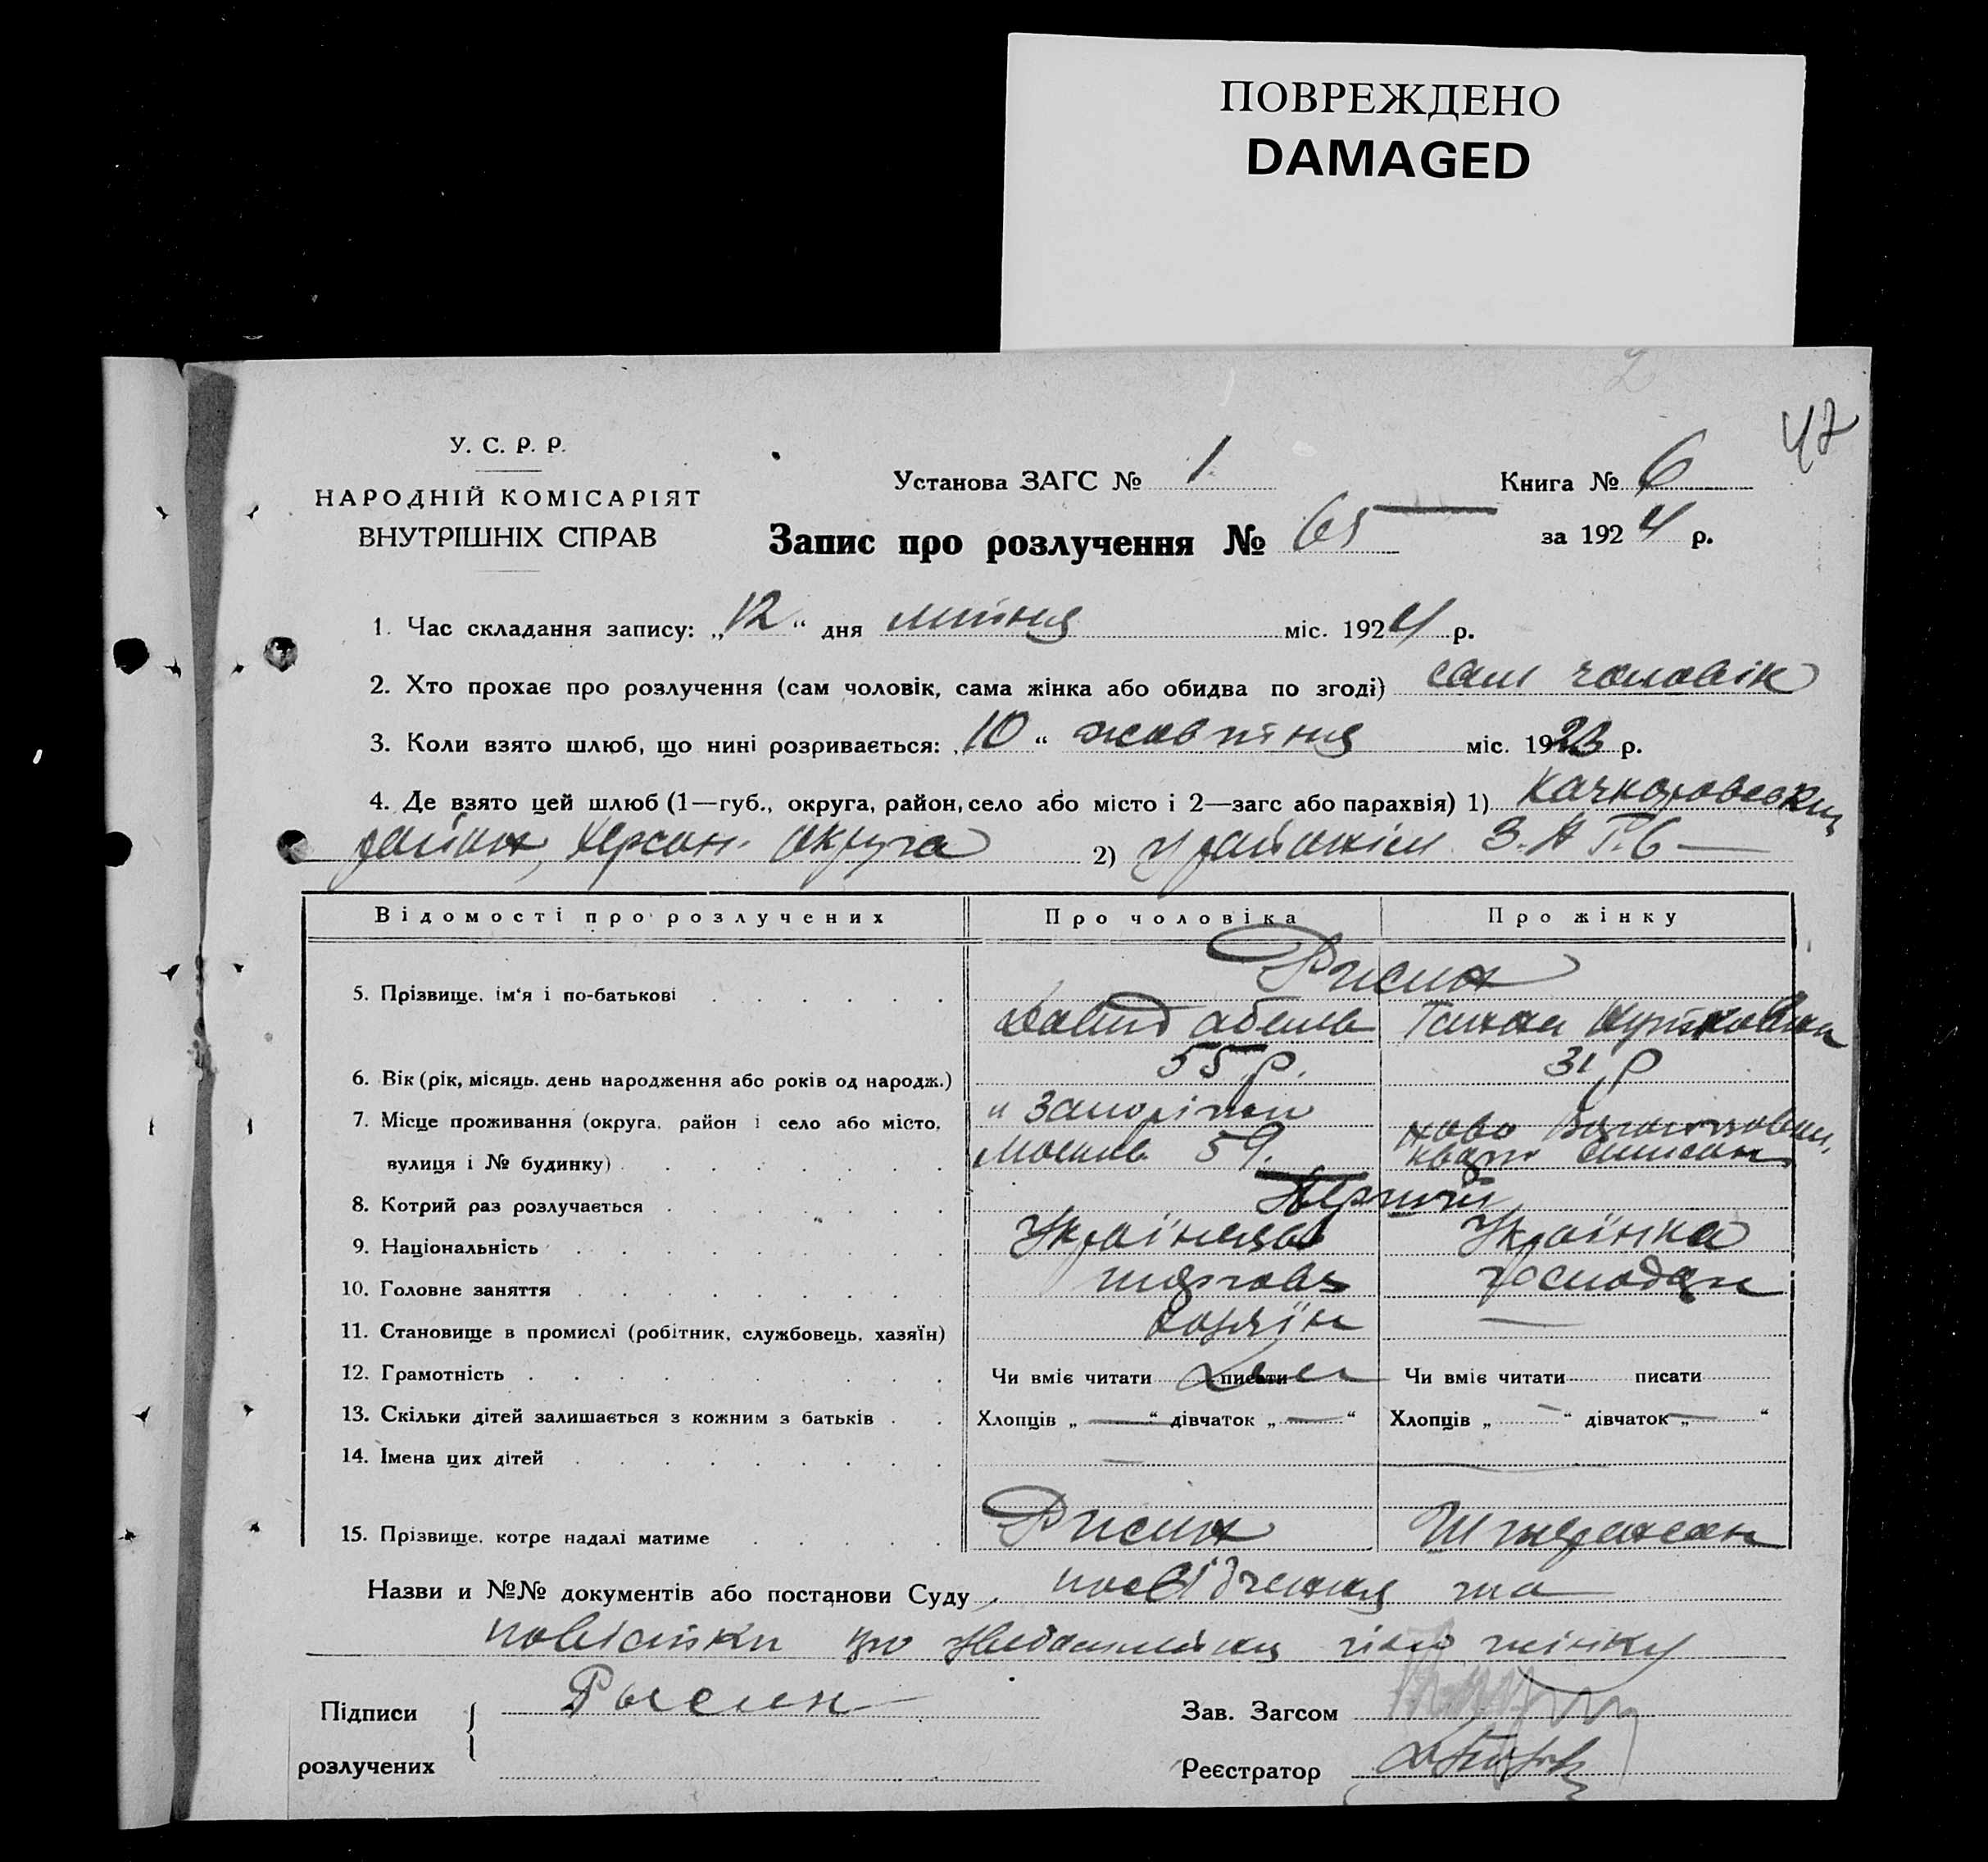 ПОВРЕЖДЕНО
DAMAGED
2
47
У. С. Р. Р.
НАРОДНІЙ КОМІСАРІЯТ
ВНУТРІШНІХ СПРАВ
Установа ЗАГС № 1
Книга № 6
Запис про розлучення № 65
за 1924 р.
1. Час складання запису: „12“ дня липня міс. 1924 р.
2. Хто прохає про розлучення (сам чоловік, сама жінка або обидва по згоді) сам чоловік
3. Коли взято шлюб, що нині розривається: „10“ жовтня міс. 1923 р.
4. Де взято цей шлюб (1—губ., округа, район, село або місто і 2—загс або парахвія) 1)
район, Херсон. округа 2) у районім З.А.Г.С
Відомості про розлучених Про чоловіка Про жінку
Рисин
5. Прізвище, ім‘я і по-батькові . . . . . .
Давид
6. Вік (рік, місяць, день народження або років од народж.) 55 р. 31 р
7. Місце проживання (округа, район і село або місто, Запоріжжя
вулиця і № будинку) . . . . . . . 59.
8. Котрий раз розлучається . . . . . . . Перший
9. Національність . . . . . . . . Українець Українка
10. Головне заняття . . . . . . . . торговля господар
11. Становище в промислі (робітник, службовець, хазяїн) хазяїн —
12. Грамотність . . . . . . . . . Чи вміє читати писати Чи вміє читати писати
13. Скільки дітей залишається з кожним з батьків . . Хлопців „ — “ дівчаток „ — “ Хлопців „ — “ дівчаток „ — “
14. Імена цих дітей . . . . . . . . —
15. Прізвище, котре надалі матиме . . . . . Рисин
Назви и №№ документів або постанови Суду посвідчення та
повістки про його жінку
Підписи
розлучених
Рысин
Зав. Загсом
Реєстратор